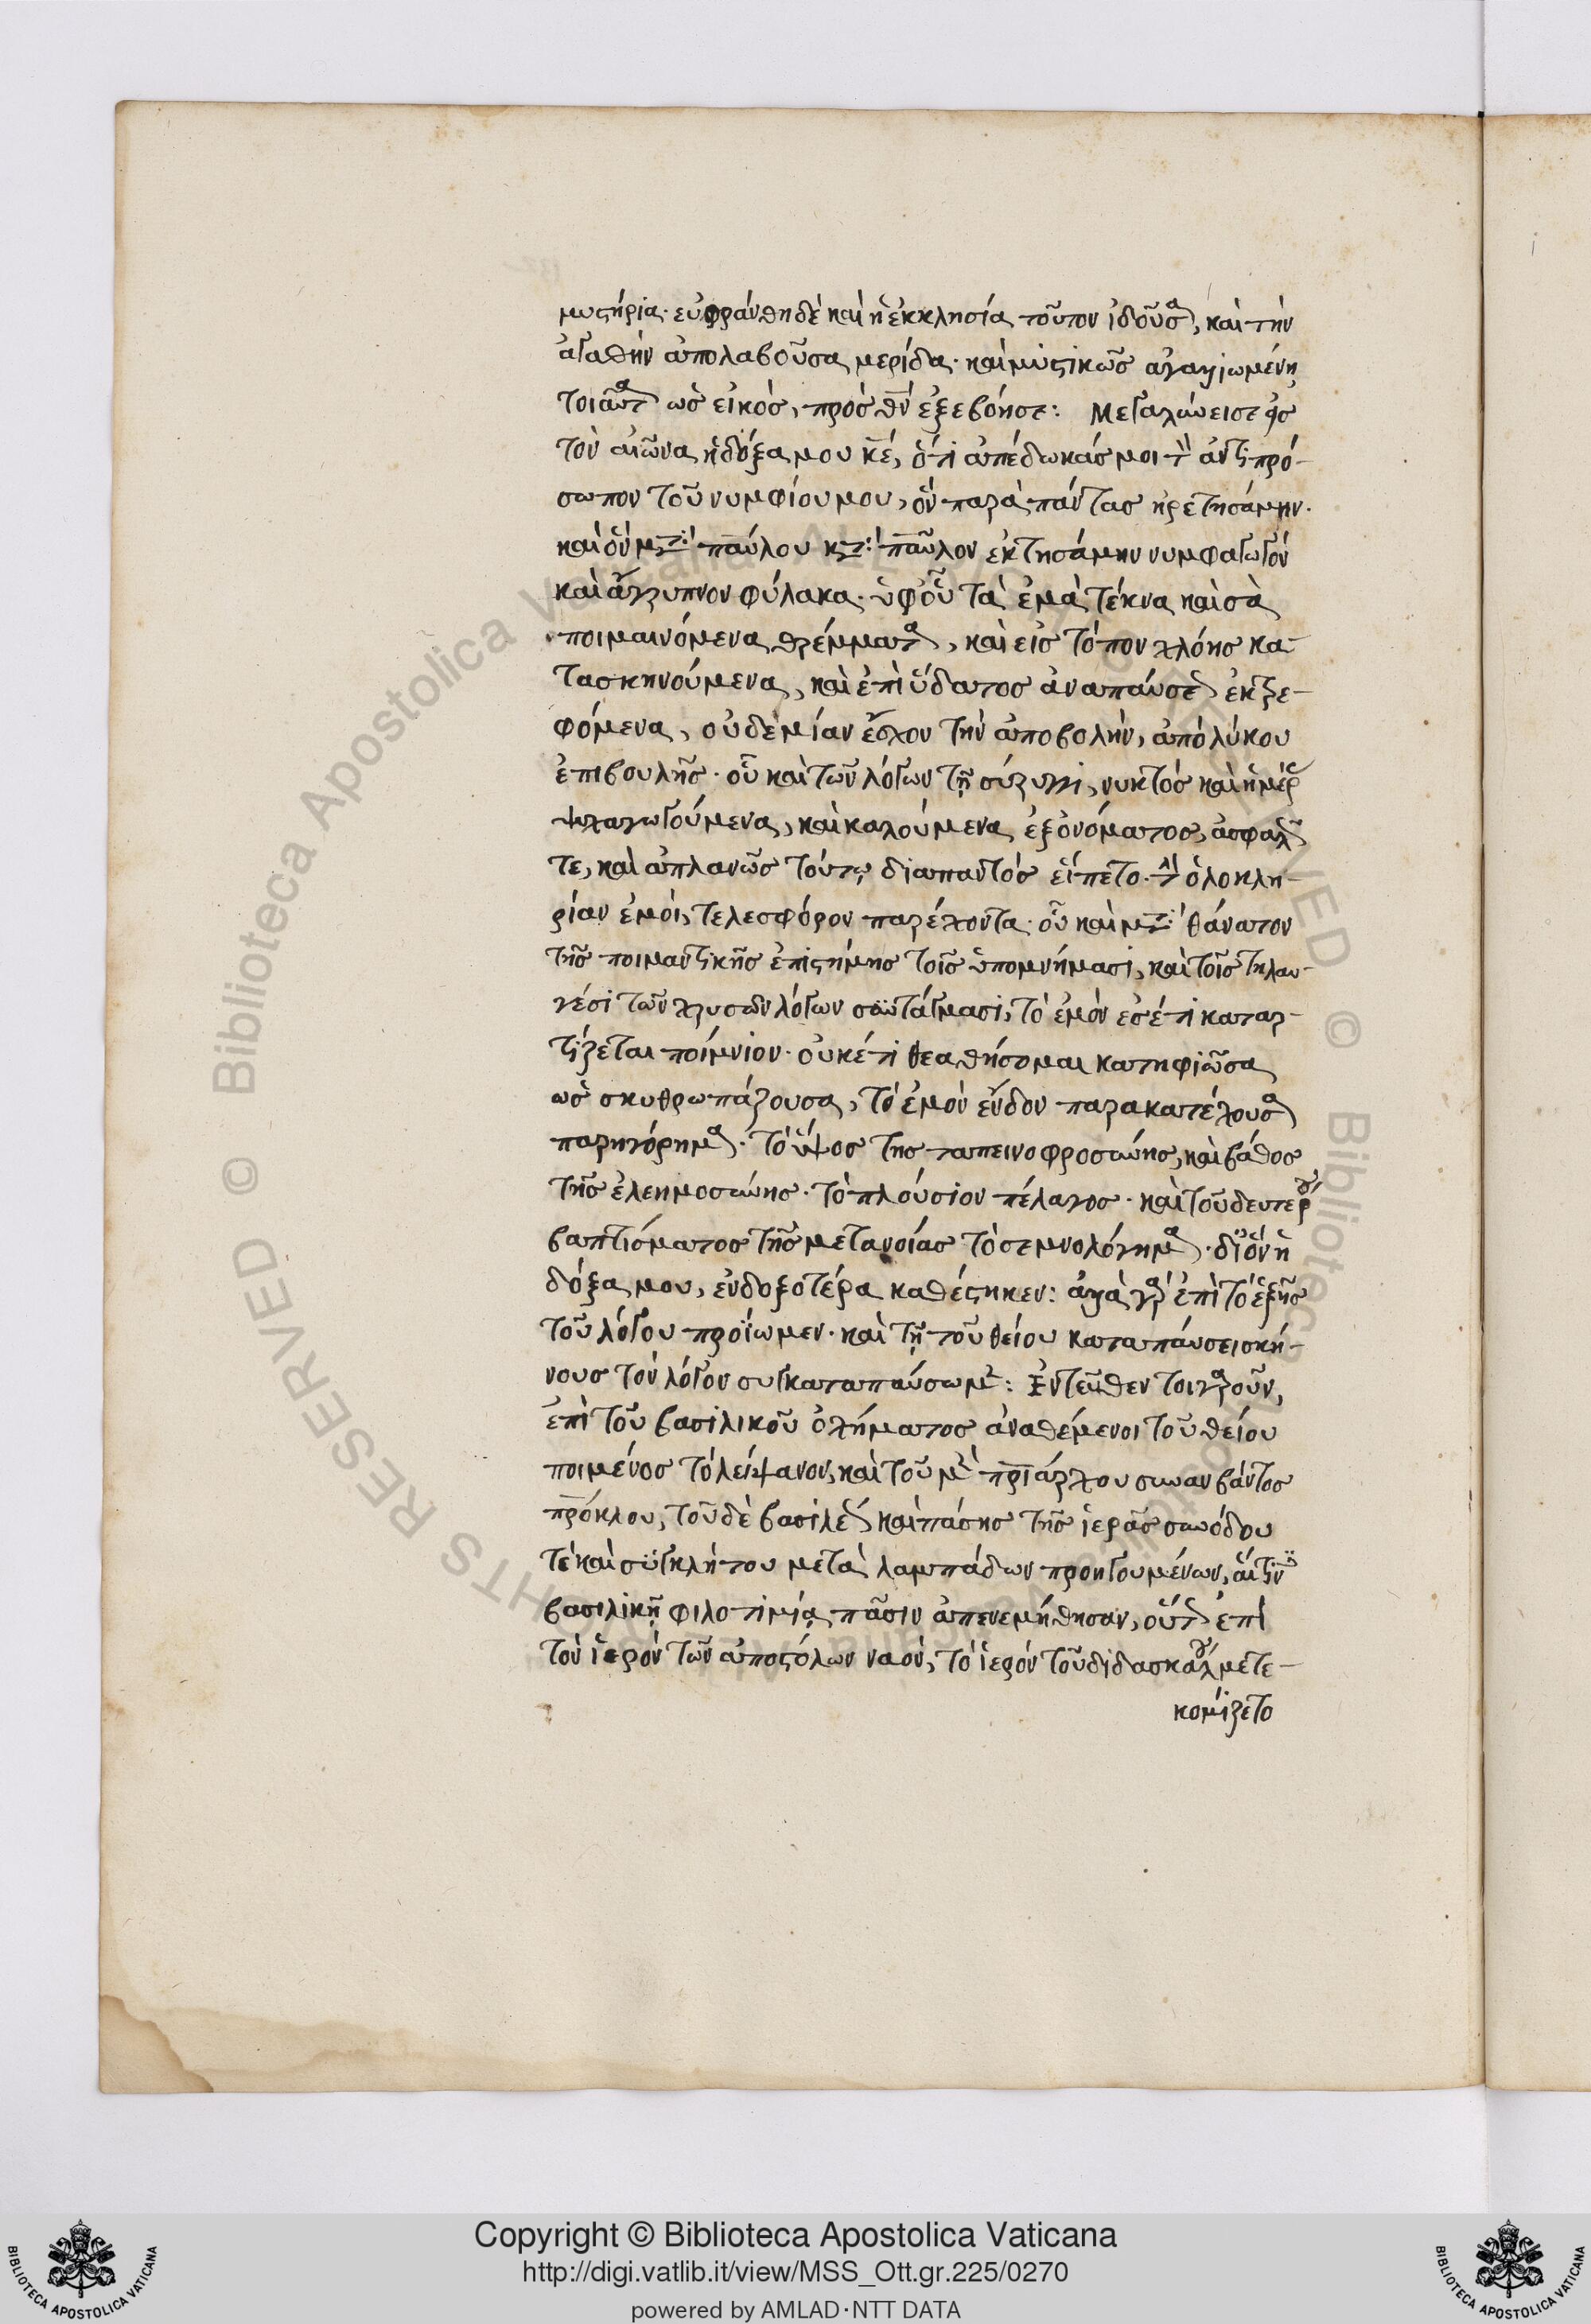 μυστήρια· εὐφράνθη δὲ καὶ ἡ ἐκκλησία τοῦτον ἰδοῦσα, καὶ τὴν
ἀγαθὴν ἀπολαβοῦσα μερίδα· καὶ μυστικῶς ἀγαλλιωμένη
τοιαῦτα ὡς εἰκὸς, πρὸς θν ἐξεβόησε: Μεγαλύνεις εἰς
τὸν αἰῶνα ἡ δόξα μου κε, ὅτι ἀπέδωκάς μοι τὸ ἀντιπρό-
σωπον τοῦ νυμφίου μου, ὃν παρὰ πάντας ᾑρετησάμην·
καὶ ὃν μετὰ παύλου κατὰ παῦλον ἐκτησάμην νυμφαγωγόν
καὶ ἄγρυπνον φύλακα· ὑφ' οὗ τὰ ἐμὰ τέκνα καὶ σὰ
ποιμαινόμενα θρέμματα, καὶ εἰς τόπον χλόης κα-
τασκηνούμενα, καὶ ἐπὶ ὕδατος ἀναπαύσεως ἐκτρε-
φόμενα, οὐδεμίαν ἔσχον τὴν ἀποβολὴν, ἀπὸ λύκου
ἐπιβουλῆς· οὗ καὶ τῶν λόγων τῇ σύριγγι, νυκτὸς καὶ ἡμέρας
ψυχαγωγούμενα, καὶ καλούμενα ἐξ ὀνόματος, ἀσφαλῶς
τε, καὶ ἀπλανῶς τούτῳ διαπαντὸς εἵπετο· τὴν ὁλοκλη-
ρίαν ἐμοὶ, τελεσφόρον παρέχοντα· οὗ καὶ μετὰ θάνατον
τῆς ποιμαντικῆς ἐπιστήμης τοῖς ὑπομνήμασι, καὶ τοῖς τηλαυ-
γέσι τῶν χρυσῶν λόγων συντάγμασι, τὸ ἐμὸν ἐσέτι καταρ-
τίζεται ποίμνιον· οὐκέτι θεαθήσομαι κατηφιῶσα
ὡς σκυθρωπάζουσα, τὸ ἐμὸν ἔνδον παρακατέχουσα
παρηγόρημα· τὸ ὕψος της ταπεινοφροσύνης, καὶ βάθος
τῆς ἐλεημοσύνης· τὸ πλούσιον πέλαγος· καὶ τοῦ δευτέρου
βαπτίσματος τῆς μετανοίας τὸ σεμνολόγημα· δι' ὃν ἡ
δόξα μου, ἐνδοξοτέρα καθέστηκεν: ἀλλὰ γὰρ ἐπὶ τὸ ἑξῆς
τοῦ λόγου προΐωμεν· καὶ τῇ τοῦ θείου καταπαύσει σκή-
νους τὸν λόγον συγκαταπαύσωμεν: Ἐντεῦθεν τοιγαροῦν,
ἐπὶ τοῦ βασιλικοῦ ὀχήματος ἀναθέμενοι τοῦ θείου
ποιμένος τὸ λείψανον, καὶ τοῦ μὲν πριάρχου συναναβάντος
πρόκλου, τοῦ δὲ βασιλέως καὶ πάσης τῆς ἱερᾶς συνόδου
τὲ καὶ συγκλήτου μετὰ λαμπάδων προηγουμένων, αἵτινες
βασιλικῇ φιλοτιμίᾳ πᾶσιν ἀπενεμήθησαν, οὕτως ἐπὶ
τὸν ἱερὸν τῶν ἀποστόλων ναὸν, τὸ ἱερὸν τοῦ διδασκάλου μετε-
κομίζετο
Copyright © Biblioteca Apostolica Vaticana
http://digi.vatlib.it/view/MSS_Ott.gr.225/0270
powered by AMLAD·NTT DATA